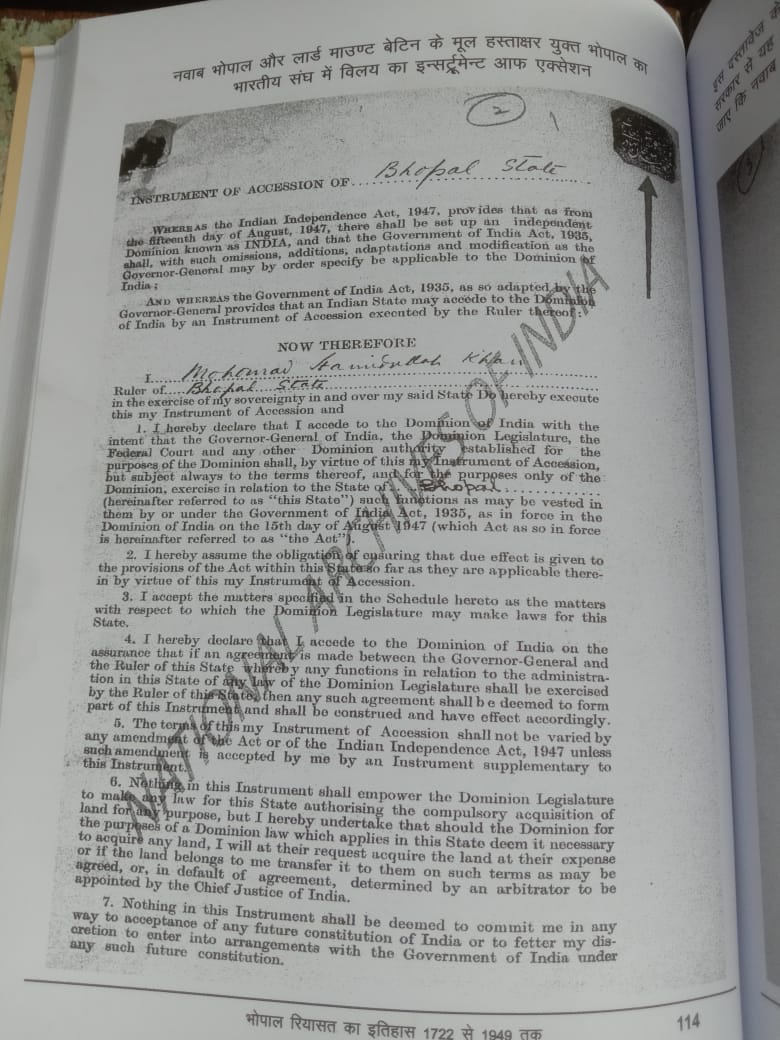 नवाब भोपाल और लार्ड माउण्ट बेटिन के मूल हस्ताक्षर युक्त भोपाल का
भारतीय संघ में विलय का इन्सर्ट्रूमेन्ट आफ एक्सेशन
2
INSTRUMENT OF ACCESSION OF Bhopal State
WHEREAS the Indian Independence Act, 1947, provides that as from
the fifteenth day of August, 1947, there shall be set up an independent
Dominion known as INDIA, and that the Government of India Act, 1935,
shall, with such omissions, additions, adaptations and modification as the
Governor-General may by order specify be applicable to the Dominion of
India ;
AND WHEREAS the Government of India Act, 1935, as so adapted by the
Governor-General provides that an Indian State may accede to the Dominion
of India by an Instrument of Accession executed by the Ruler thereof:
NOW THEREFORE
I Mohomad Hamidullah Khan
Ruler of Bhopal State
in the exercise of my sovereignty in and over my said State Do hereby execute
this my Instrument of Accession and
1. I hereby declare that I accede to the Dominion of India with the
intent that the Governor-General of India, the Dominion Legislature, the
Federal Court and any other Dominion authority established for the
purposes of the Dominion shall, by virtue of this my Instrument of Accession,
but subject always to the terms thereof, and for the purposes only of the
Dominion, exercise in relation to the State of Bhopal
(hereinafter referred to as "this State") such functions as may be vested in
them by or under the Government of India Act, 1935, as in force in the
Dominion of India on the 15th day of August 1947 (which Act as so in force
is hereinafter referred to as "the Act").
2. I hereby assume the obligation of ensuring that due effect is given to
the provisions of the Act within this State so far as they are applicable there-
in by virtue of this my Instrument of Accession.
3. I accept the matters specified in the Schedule hereto as the matters
with respect to which the Dominion Legislature may make laws for this
State.
4. I hereby declare that I accede to the Dominion of India on the
assurance that if an agreement is made between the Governor-General and
the Ruler of this State whereby any functions in relation to the administra-
tion in this State of any law of the Dominion Legislature shall be exercised
by the Ruler of this State, then any such agreement shall be deemed to form
part of this Instrument and shall be construed and have effect accordingly.
5. The terms of this my Instrument of Accession shall not be varied by
any amendment of the Act or of the Indian Independence Act, 1947 unless
such amendment is accepted by me by an Instrument supplementary to
this Instrument.
6. Nothing in this Instrument shall empower the Dominion Legislature
to make any law for this State authorising the compulsory acquisition of
land for any purpose, but I hereby undertake that should the Dominion for
the purposes of a Dominion law which applies in this State deem it necessary
to acquire any land, I will at their request acquire the land at their expense
or if the land belongs to me transfer it to them on such terms as may be
agreed, or, in default of agreement, determined by an arbitrator to be
appointed by the Chief Justice of India.
7. Nothing in this Instrument shall be deemed to commit me in any
way to acceptance of any future constitution of India or to fetter my dis-
cretion to enter into arrangements with the Government of India under
any such future constitution.
NATIONAL ARCHIVES OF INDIA
भोपाल रियासत का इतिहास 1722 से 1949 तक
114
इस दस्तावेज
सरकार से यह
जाए कि नवाब
3